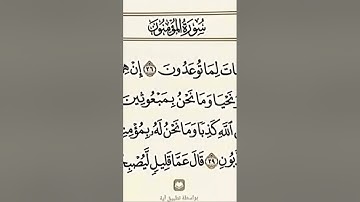 سُورَةُ المُؤْمِنُونَ
لِمَا تُوعَدُونَ ۝٣٦ إِنْ
وَنَحْيَا وَمَا نَحْنُ بِمَبْعُوثِينَ
اللَّهِ كَذِبًا وَمَا نَحْنُ لَهُ
۝٣٩ قَالَ عَمَّا قَلِيلٍ
بواسطة تطبيق آية